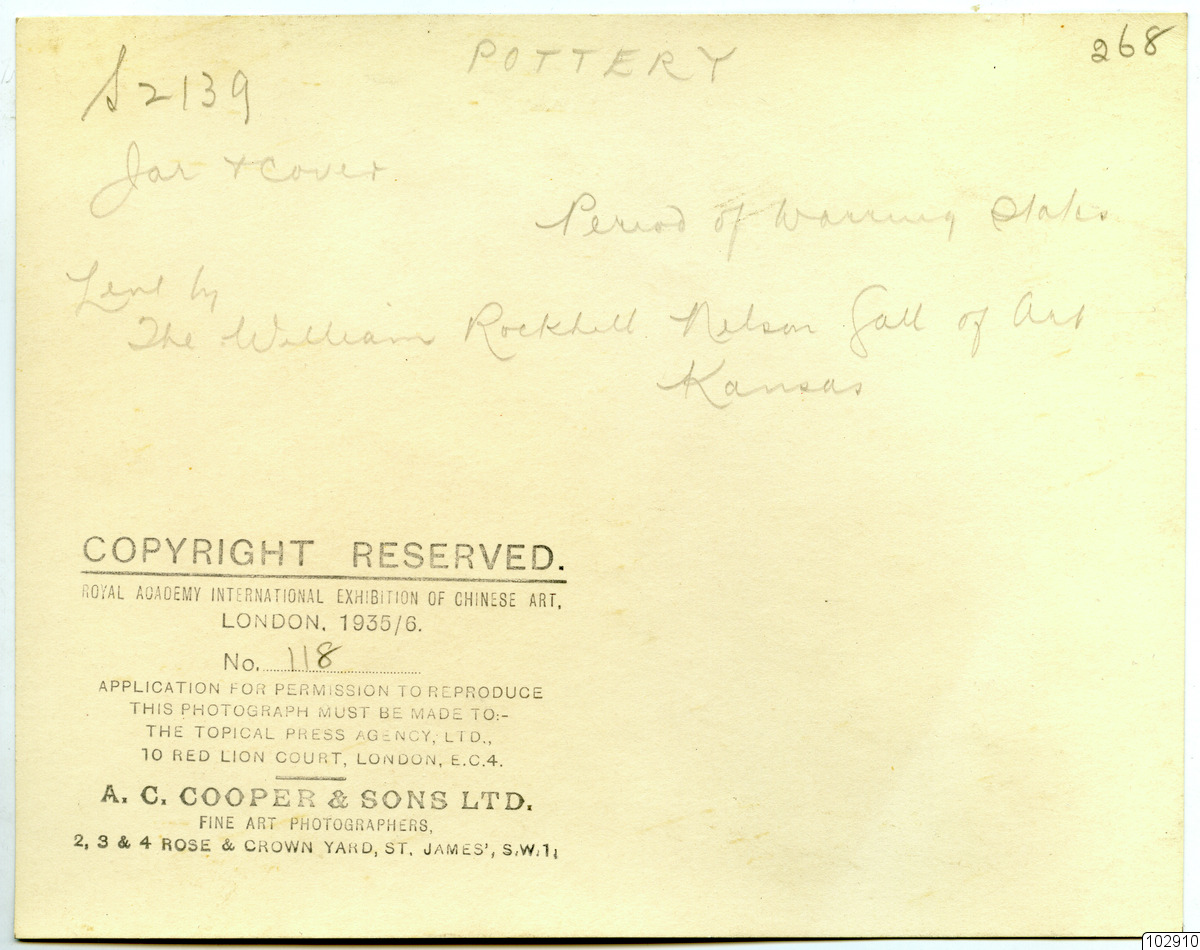 POTTERY
268
S2139
Jar + Cover
Period of Warring States
Lent by
The William Rockhill Nelson Gall of Art
Kansas
COPYRIGHT RESERVED.
ROYAL ACADEMY INTERNATIONAL EXHIBITION OF CHINESE ART,
LONDON, 1935/6.
No. 118
APPLICATION FOR PERMISSION TO REPRODUCE
THIS PHOTOGRAPH MUST BE MADE TO:-
THE TOPICAL PRESS AGENCY, LTD.,
10 RED LION COURT, LONDON, E.C.4.
A. C. COOPER & SONS LTD.
FINE ART PHOTOGRAPHERS,
2, 3 & 4 ROSE & CROWN YARD, ST. JAMES', S.W.1.
102910